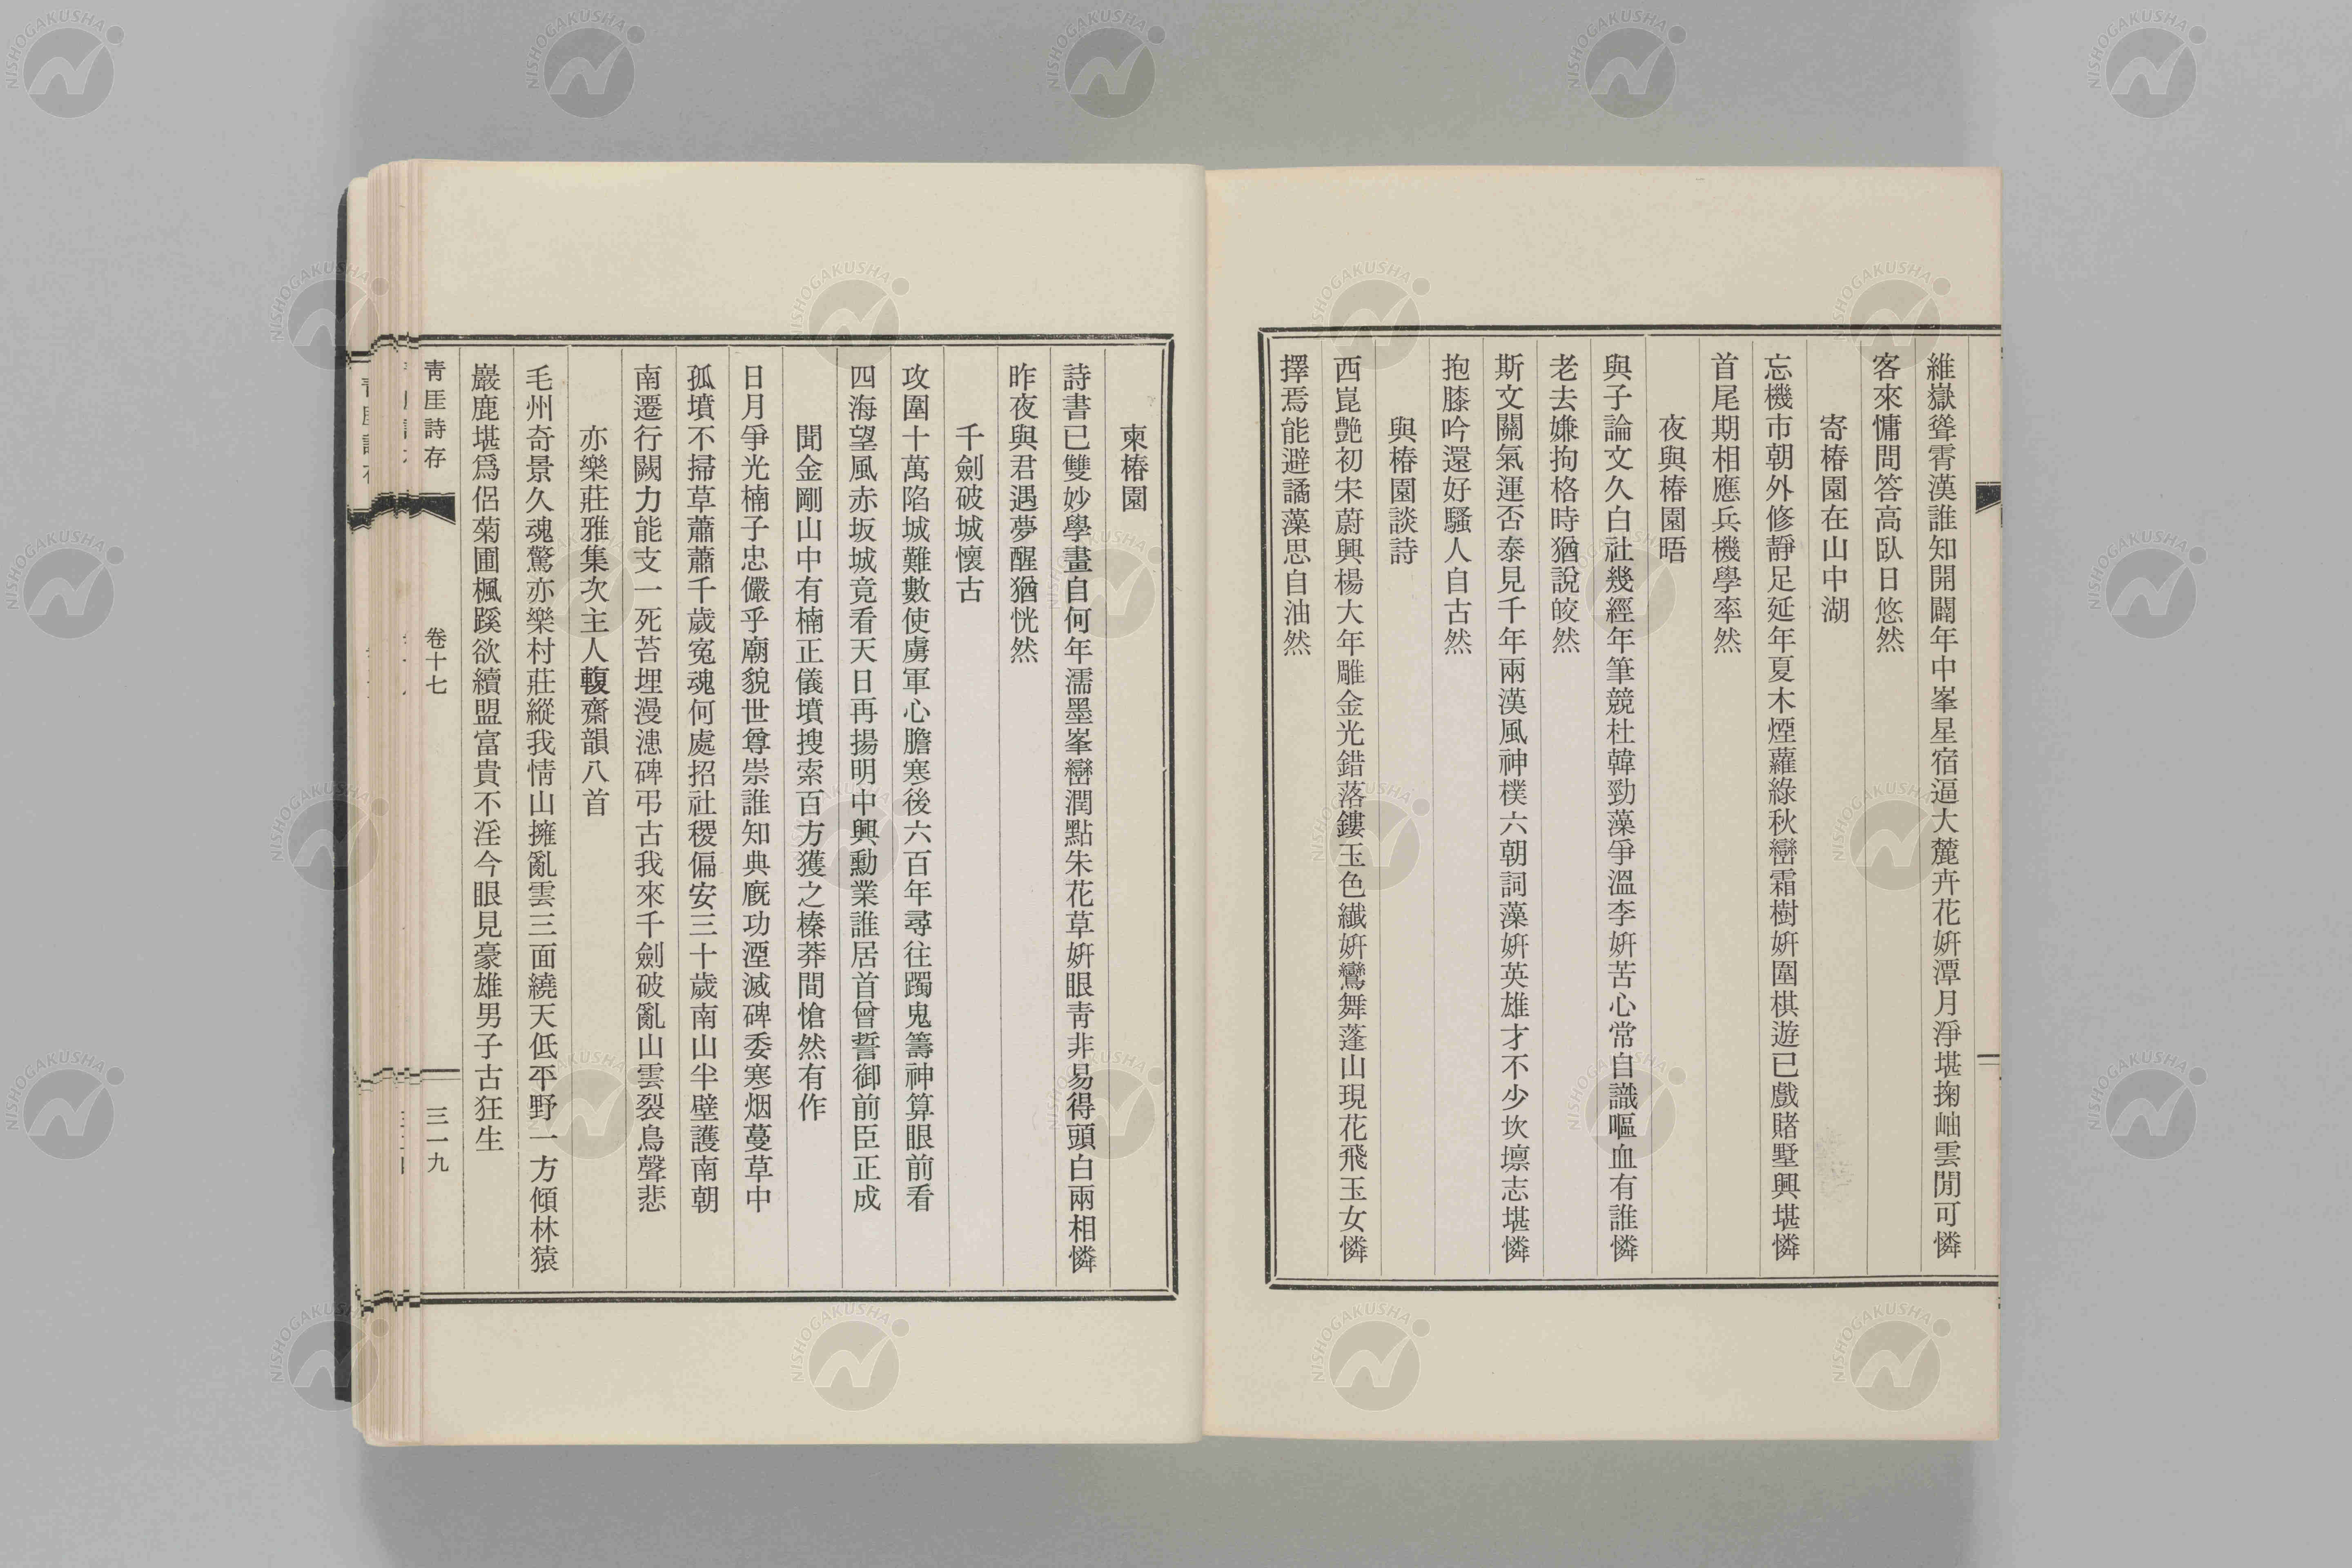 維嶽聳霄漢誰知開闢年中峯星宿逼大麓卉花姸潭月淨堪掬岫雲閒可憐
客來慵問答高臥日悠然
寄椿園在山中湖
忘機市朝外修靜足延年夏木煙蘿綠秋巒霜樹姸圍棋遊已戲賭墅興堪憐
首尾期相應兵機學率然
夜與椿園晤
與子論文久白社幾經年筆競杜韓勁藻爭溫李姸苦心常自識嘔血有誰憐
老去嫌拘格時猶說皎然
斯文關氣運否泰見千年兩漢風神樸六朝詞藻姸英雄才不少坎壈志堪憐
抱膝吟還好騷人自古然
與椿園談詩
西崑艷初宋蔚興楊大年雕金光錯落鏤玉色纖姸鸞舞蓬山現花飛玉女憐
擇焉能避譎藻思自油然
柬椿園
詩書已雙妙學畫自何年濡墨峯巒潤點朱花草姸眼靑非易得頭白兩相憐
昨夜與君遇夢醒猶恍然
千劍破城懷古
攻圍十萬陷城難數使虜軍心膽寒後六百年尋往躅鬼籌神算眼前看
四海望風赤坂城竟看天日再揚明中興勳業誰居首曾誓御前臣正成
聞金剛山中有楠正儀墳搜索百方獲之榛莽間愴然有作
日月爭光楠子忠儼乎廟貌世尊崇誰知典廐功湮滅碑委寒烟蔓草中
孤墳不掃草蕭蕭千歲冤魂何處招社稷偏安三十歲南山半壁護南朝
南遷行闕力能支一死苔埋漫漶碑弔古我來千劍破亂山雲裂鳥聲悲
亦樂莊雅集次主人輹齋韻八首
毛州奇景久魂驚亦樂村莊縱我情山擁亂雲三面繞天低平野一方傾林猿
巖鹿堪爲侶菊圃楓蹊欲續盟富貴不淫今眼見豪雄男子古狂生
靑厓詩存
卷十七
三一九
NISHOGAKUSHA